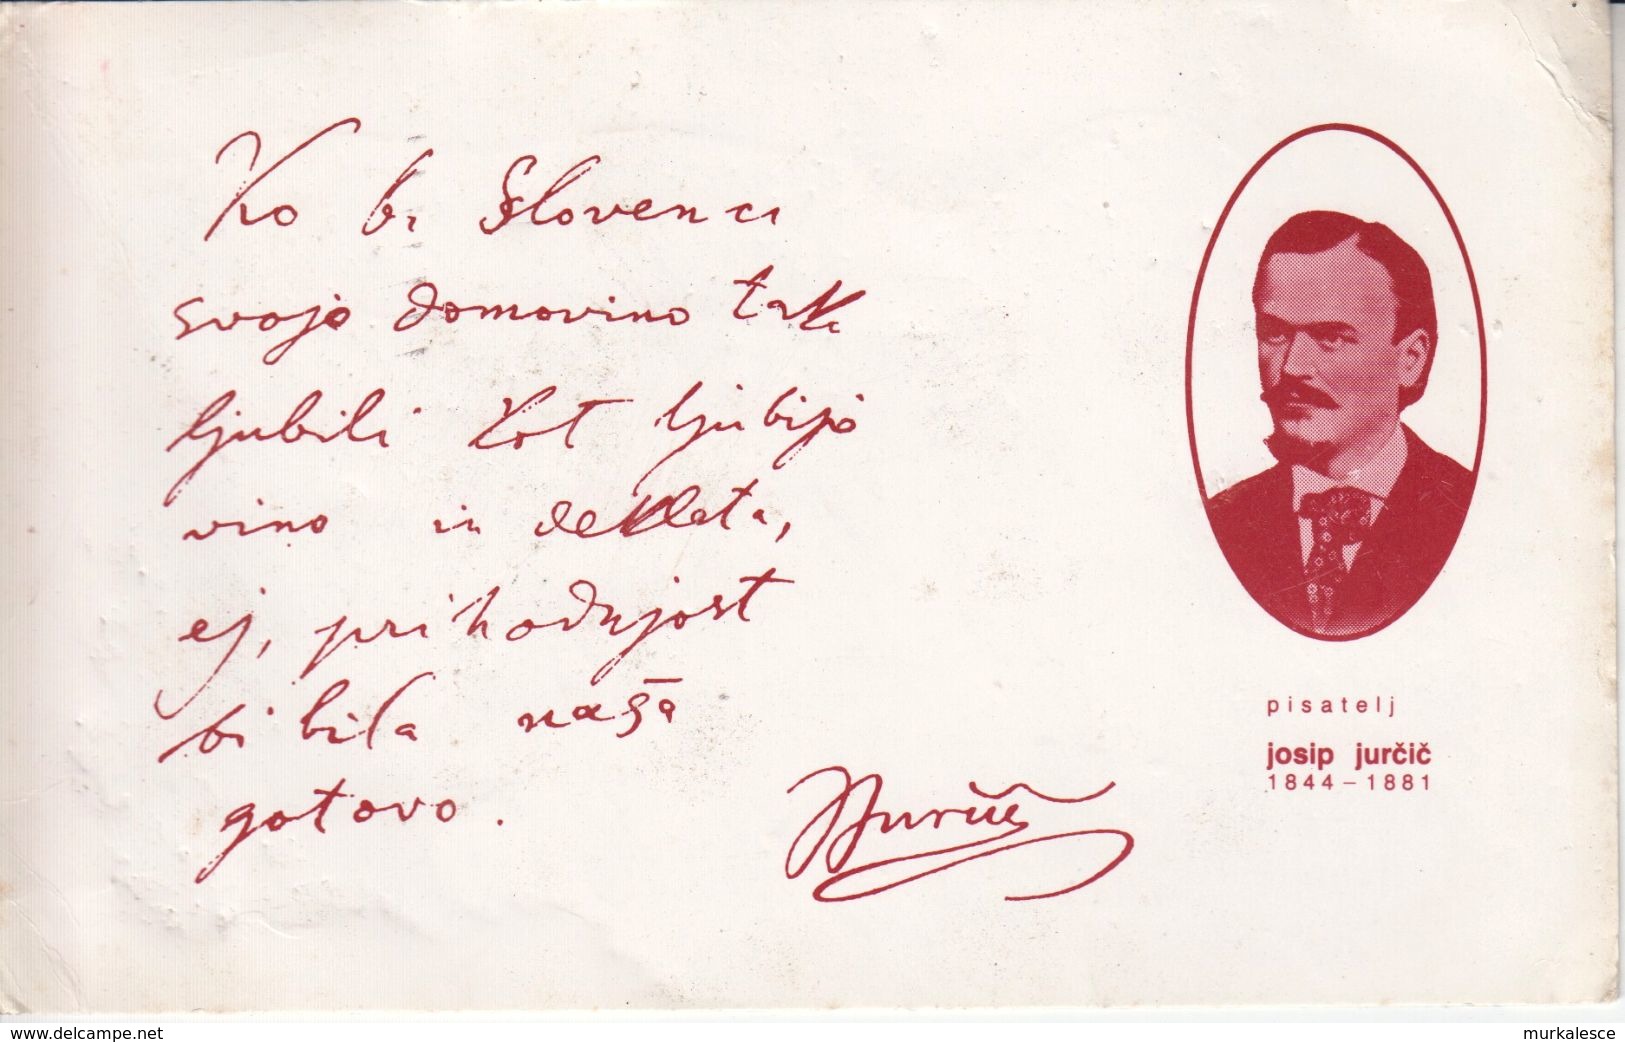 Ko bi Slovenci
svojo domovino tako
ljubili kot ljubijo
vino in dekleta,
ej, prihodnjost
bi bila naša
gotovo.
Jurčič
pisatelj
josip jurčič
1844-1881
www.delcampe.net
murkalesce